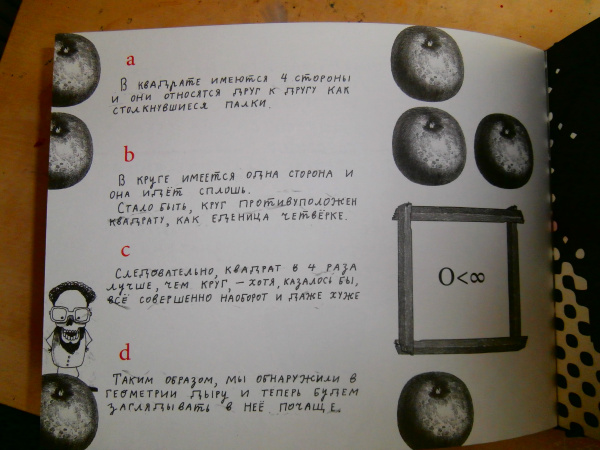 a
В КВАДРАТЕ ИМЕЮТСЯ 4 СТОРОНЫ
И ОНИ ОТНОСЯТСЯ ДРУГ К ДРУГУ КАК
СТОЛКНУВШИЕСЯ ПАЛКИ.
b
В КРУГЕ ИМЕЕТСЯ ОДНА СТОРОНА И
ОНА ИДЁТ СПЛОШЬ.
СТАЛО БЫТЬ, КРУГ ПРОТИВУПОЛОЖЕН
КВАДРАТУ, КАК ЕДЕНИЦА ЧЕТВЁРКЕ.
c
СЛЕДОВАТЕЛЬНО, КВАДРАТ В 4 РАЗА
ЛУЧШЕ, ЧЕМ КРУГ, – ХОТЯ, КАЗАЛОСЬ БЫ,
ВСЁ СОВЕРШЕННО НАОБОРОТ И ДАЖЕ ХУЖЕ
O<∞
d
ТАКИМ ОБРАЗОМ, МЫ ОБНАРУЖИЛИ В
ГЕОМЕТРИИ ДЫРУ И ТЕПЕРЬ БУДЕМ
ЗАГЛЯДЫВАТЬ В НЕЁ ПОЧАЩЕ.